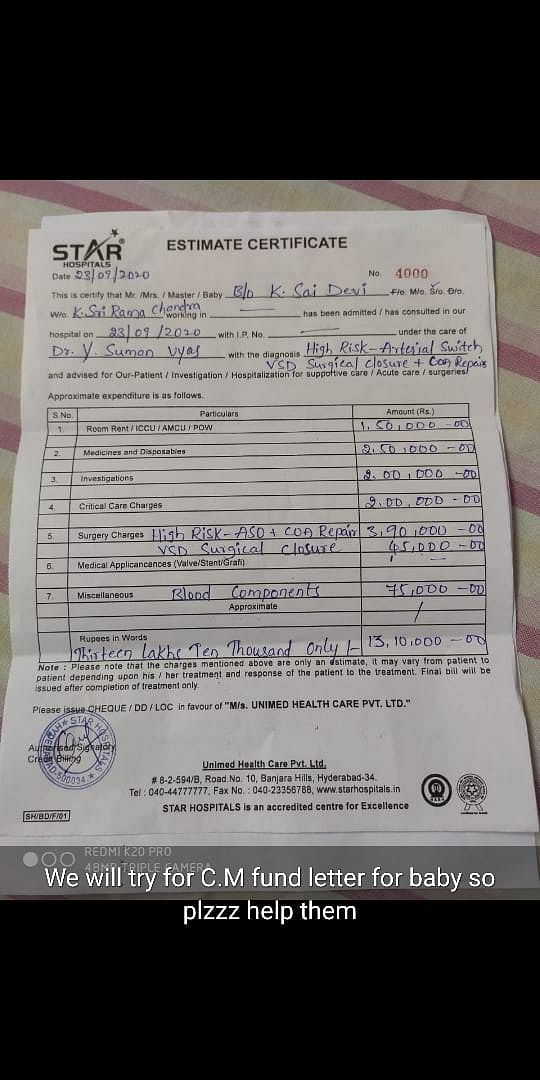 STAR
HOSPITALS
ESTIMATE CERTIFICATE
Date 23/09/2020
No. 4000
This is certify that Mr. /Mrs. / Master / Baby B/o K. Sai Devi F/o. M/o. S/o. D/o.
W/o. K. Sri Rama Chandra working in has been admitted / has consulted in our
hospital on 23/09/2020 with I.P. No. under the care of
Dr. V. Suman Vyas with the diagnosis High Risk - Arterial Switch,
VSD Surgical closure + COA Repair
and advised for Our-Patient / Investigation / Hospitalization for supportive care / Acute care / surgeries/
Approximate expenditure is as follows.
S.No. Particulars Amount (Rs.)
1. Room Rent / ICCU / AMCU / POW 1,50,000 -00
2. Medicines and Disposables 2,50,000 -00
3. Investigations 2,00,000 -00
4. Critical Care Charges 2,00,000 -00
5. Surgery Charges High Risk - ASO + COA Repair 3,90,000 -00
VSD Surgical closure 45,000 -00
6. Medical Applicancences (Valve/Stent/Graft)
7. Miscellaneous Blood Components 75,000 -00
Approximate
Rupees in Words
Thirteen Lakhs Ten Thousand Only /- 13,10,000 -00
Note : Please note that the charges mentioned above are only an estimate, it may vary from patient to
patient depending upon his / her treatment and response of the patient to the treatment. Final bill will be
issued after completion of treatment only.
Please issue CHEQUE / DD / LOC in favour of "M/s. UNIMED HEALTH CARE PVT. LTD."
Authorised Signatory
Credit Billing
STAR HOSPITALS
500034
Unimed Health Care Pvt. Ltd.
# 8-2-594/B, Road.No. 10, Banjara Hills, Hyderabad-34.
Tel : 040-44777777, Fax No. : 040-23356788, www.starhospitals.in
STAR HOSPITALS is an accredited centre for Excellence
SH/BD/F/01
REDMI K20 PRO
48MP TRIPLE CAMERA
We will try for C.M fund letter for baby so
plzzz help them